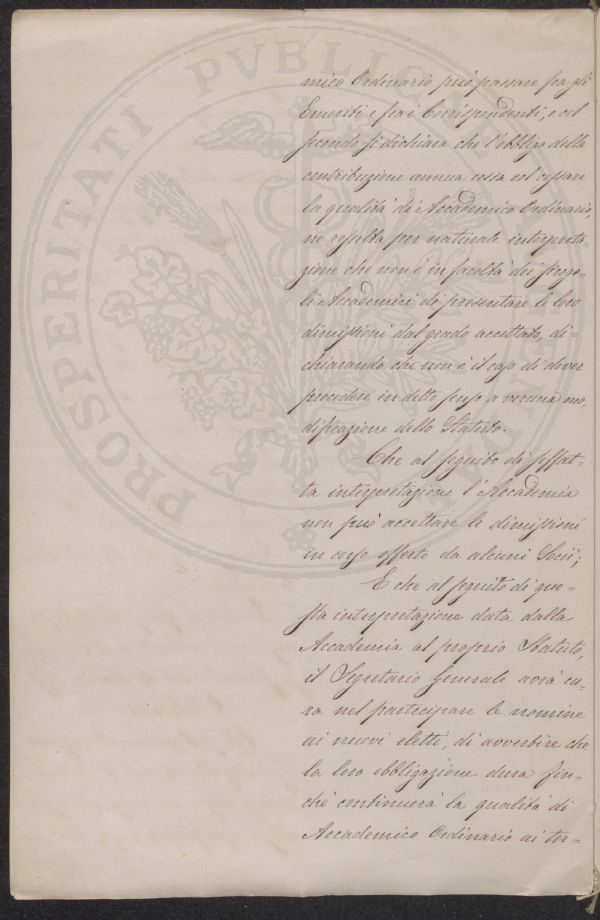 mico Ordinario può passare fra gli
Emeriti e fra i Corrispondenti, e col
secondo si dichiara che l'obbligo della
contribuzione annua cessa col cessare
la qualità di Accademico Ordinario,
ne resulta per naturale interpreta-
zione che non è in facoltà dei singo-
li Accademici di presentare le loro
dimissioni dal grado accettato, di-
chiarando che non è il caso di dover
procedere in detto senso a veruna mo-
dificazione dello Statuto.
Che al seguito di siffat-
ta interpretazione l'Accademia
non può accettare le dimissioni
in corso offerte da alcuni Socii;
E che al seguito di que-
sta interpretazione data dalla
Accademia al proprio Statuto,
il Segretario Generale avrà cu-
ra nel partecipare le nomine
ai nuovi eletti, di avvertire che
la loro obbligazione dura fin-
chè continuerà la qualità di
Accademico Ordinario ai ter-
PROSPERITATI PVBLICAE